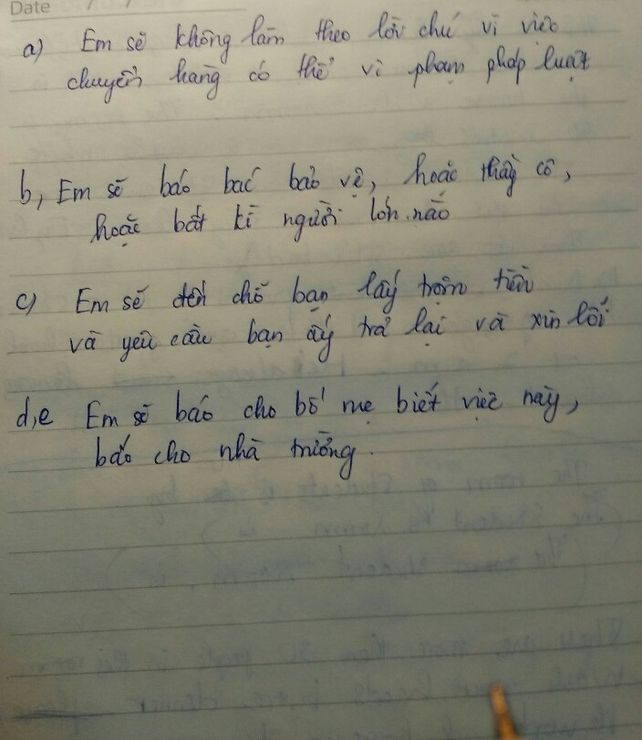 Date
a) Em sẽ không làm theo lời chú vì việc
chuyển hàng có thể vi phạm pháp luật
b, Em sẽ báo bác bảo vệ, hoặc thầy cô,
hoặc bất kì người lớn nào
c) Em sẽ đến chỗ bạn lấy trộm tiền
và yêu cầu bạn ấy trả lại và xin lỗi
d,e Em sẽ báo cho bố mẹ biết việc này,
báo cho nhà trường.